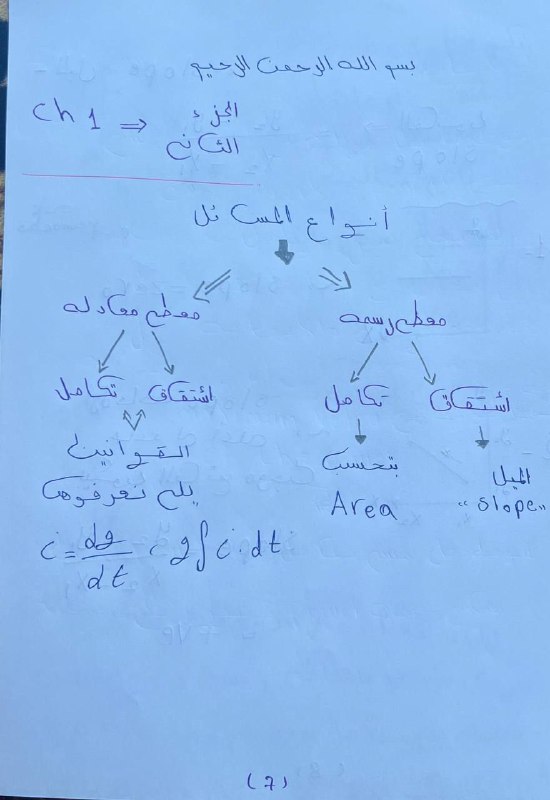 بسم الله الرحمن الرحيم
Ch 1 ⇒ الجزء
الثاني
أنواع المسائل
معطي رسمه
معطي معادله
اشتقاق
تكامل
اشتقاق
تكامل
الميل
"slope"
بتحسب
Area
القوانين
يلي نعرفوها
i = dq/dt , q ∫ i . dt
(7)